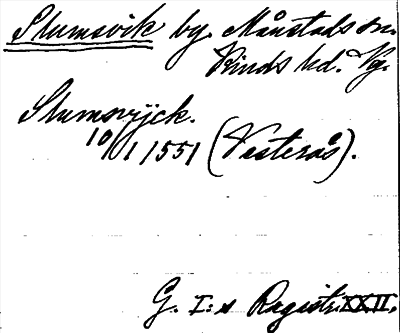 Slumsvik by. Månstads sn.
Kinds hd. Vg.
Slumsvijck.
10/1 1551 (Vesterås).
G. I:s Registr. XXII.